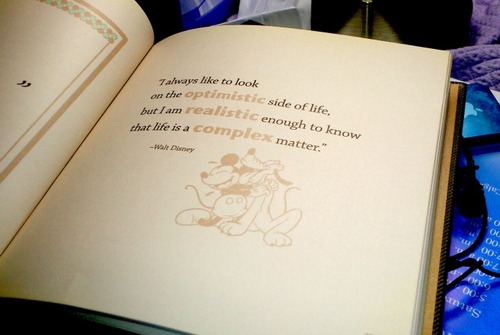 "I always like to look
on the optimistic side of life,
but I am realistic enough to know
that life is a complex matter."
–Walt Disney
”
Satur
5:00
6:00
7:00